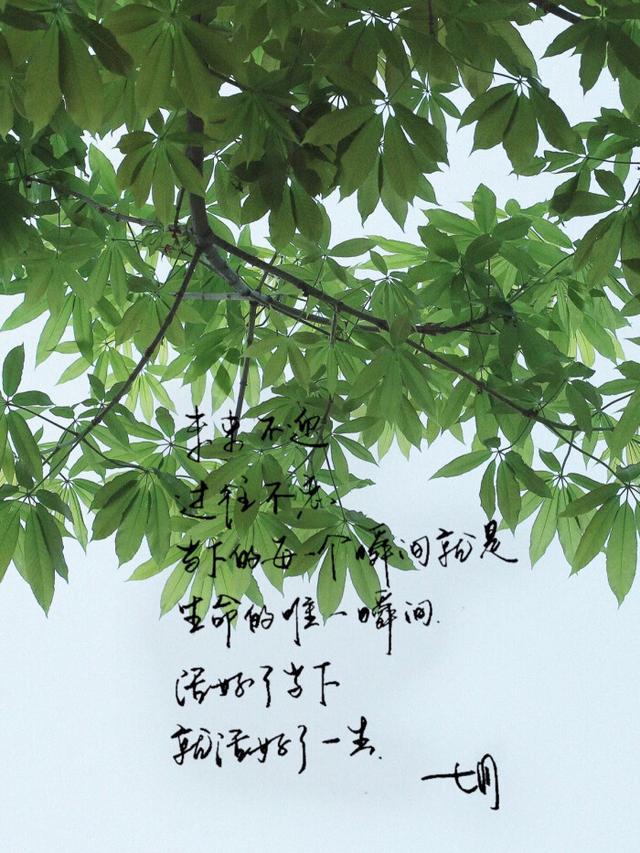 未来不迎
过往不恋
当下的每一个瞬间就是
生命的唯一瞬间.
活好了当下
就活好了一生.
七月